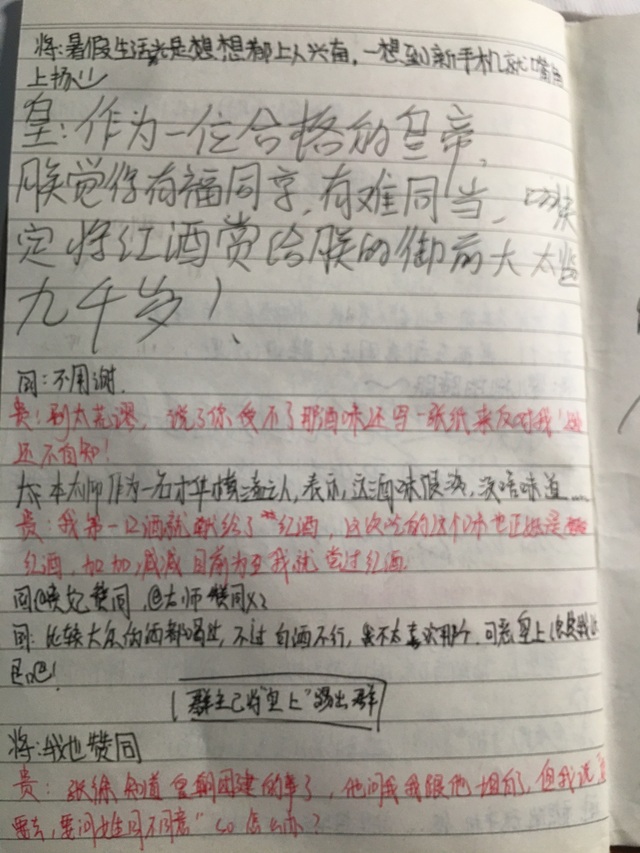 将:暑假生活光是想想都上人兴奋,一想到新手机就嘴角
上扬
皇:作为一位合格的皇帝,
朕觉得有福同享,有难同当,决
定将红酒赏给朕的御前大太监
九千岁!
同:不用谢.
贵:别太荒谬,说了你受不了那酒味还写一张纸来反对我!
还不自知!
本太师作为一名才华横溢之人,表示,这酒味很淡,没啥味道……
贵:我第一口酒就献给了红酒,这次吃的这个味也正是
红酒,加加,减减目前为至我就尝过红酒
同@贵妃赞同,@太师赞同×2
同:比较大众的酒都喝过,不过白酒不行,我不太喜欢那个.可恶皇上
群主已将"皇上"踢出群
将:我也赞同
贵:张徐知道皇朝团建的事了,他问我我跟他坦白了,但我说"
要去,要问她同不同意"so怎么办?